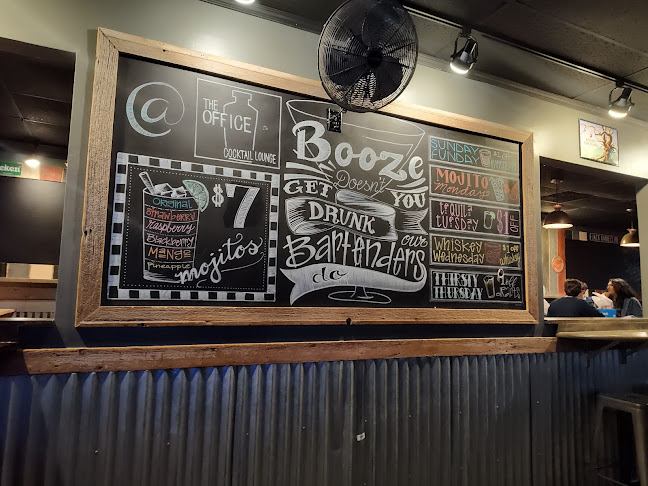 @
THE
OFFICE
COCKTAIL LOUNGE
$7
mojitos
ORIGINAL
Strawberry
Raspberry
Blackberry
MANGO
Pineapple
Booze
Doesn't
GET YOU
DRUNK
our
Bartenders
do
SUNDAY
FUNDAY
MOJITO
Monday
TEQUILA
TUESDAY
$1
OFF
WHISKEY
WEDNESDAY
$1 OFF
whiskey
THIRSTY
THURSDAY